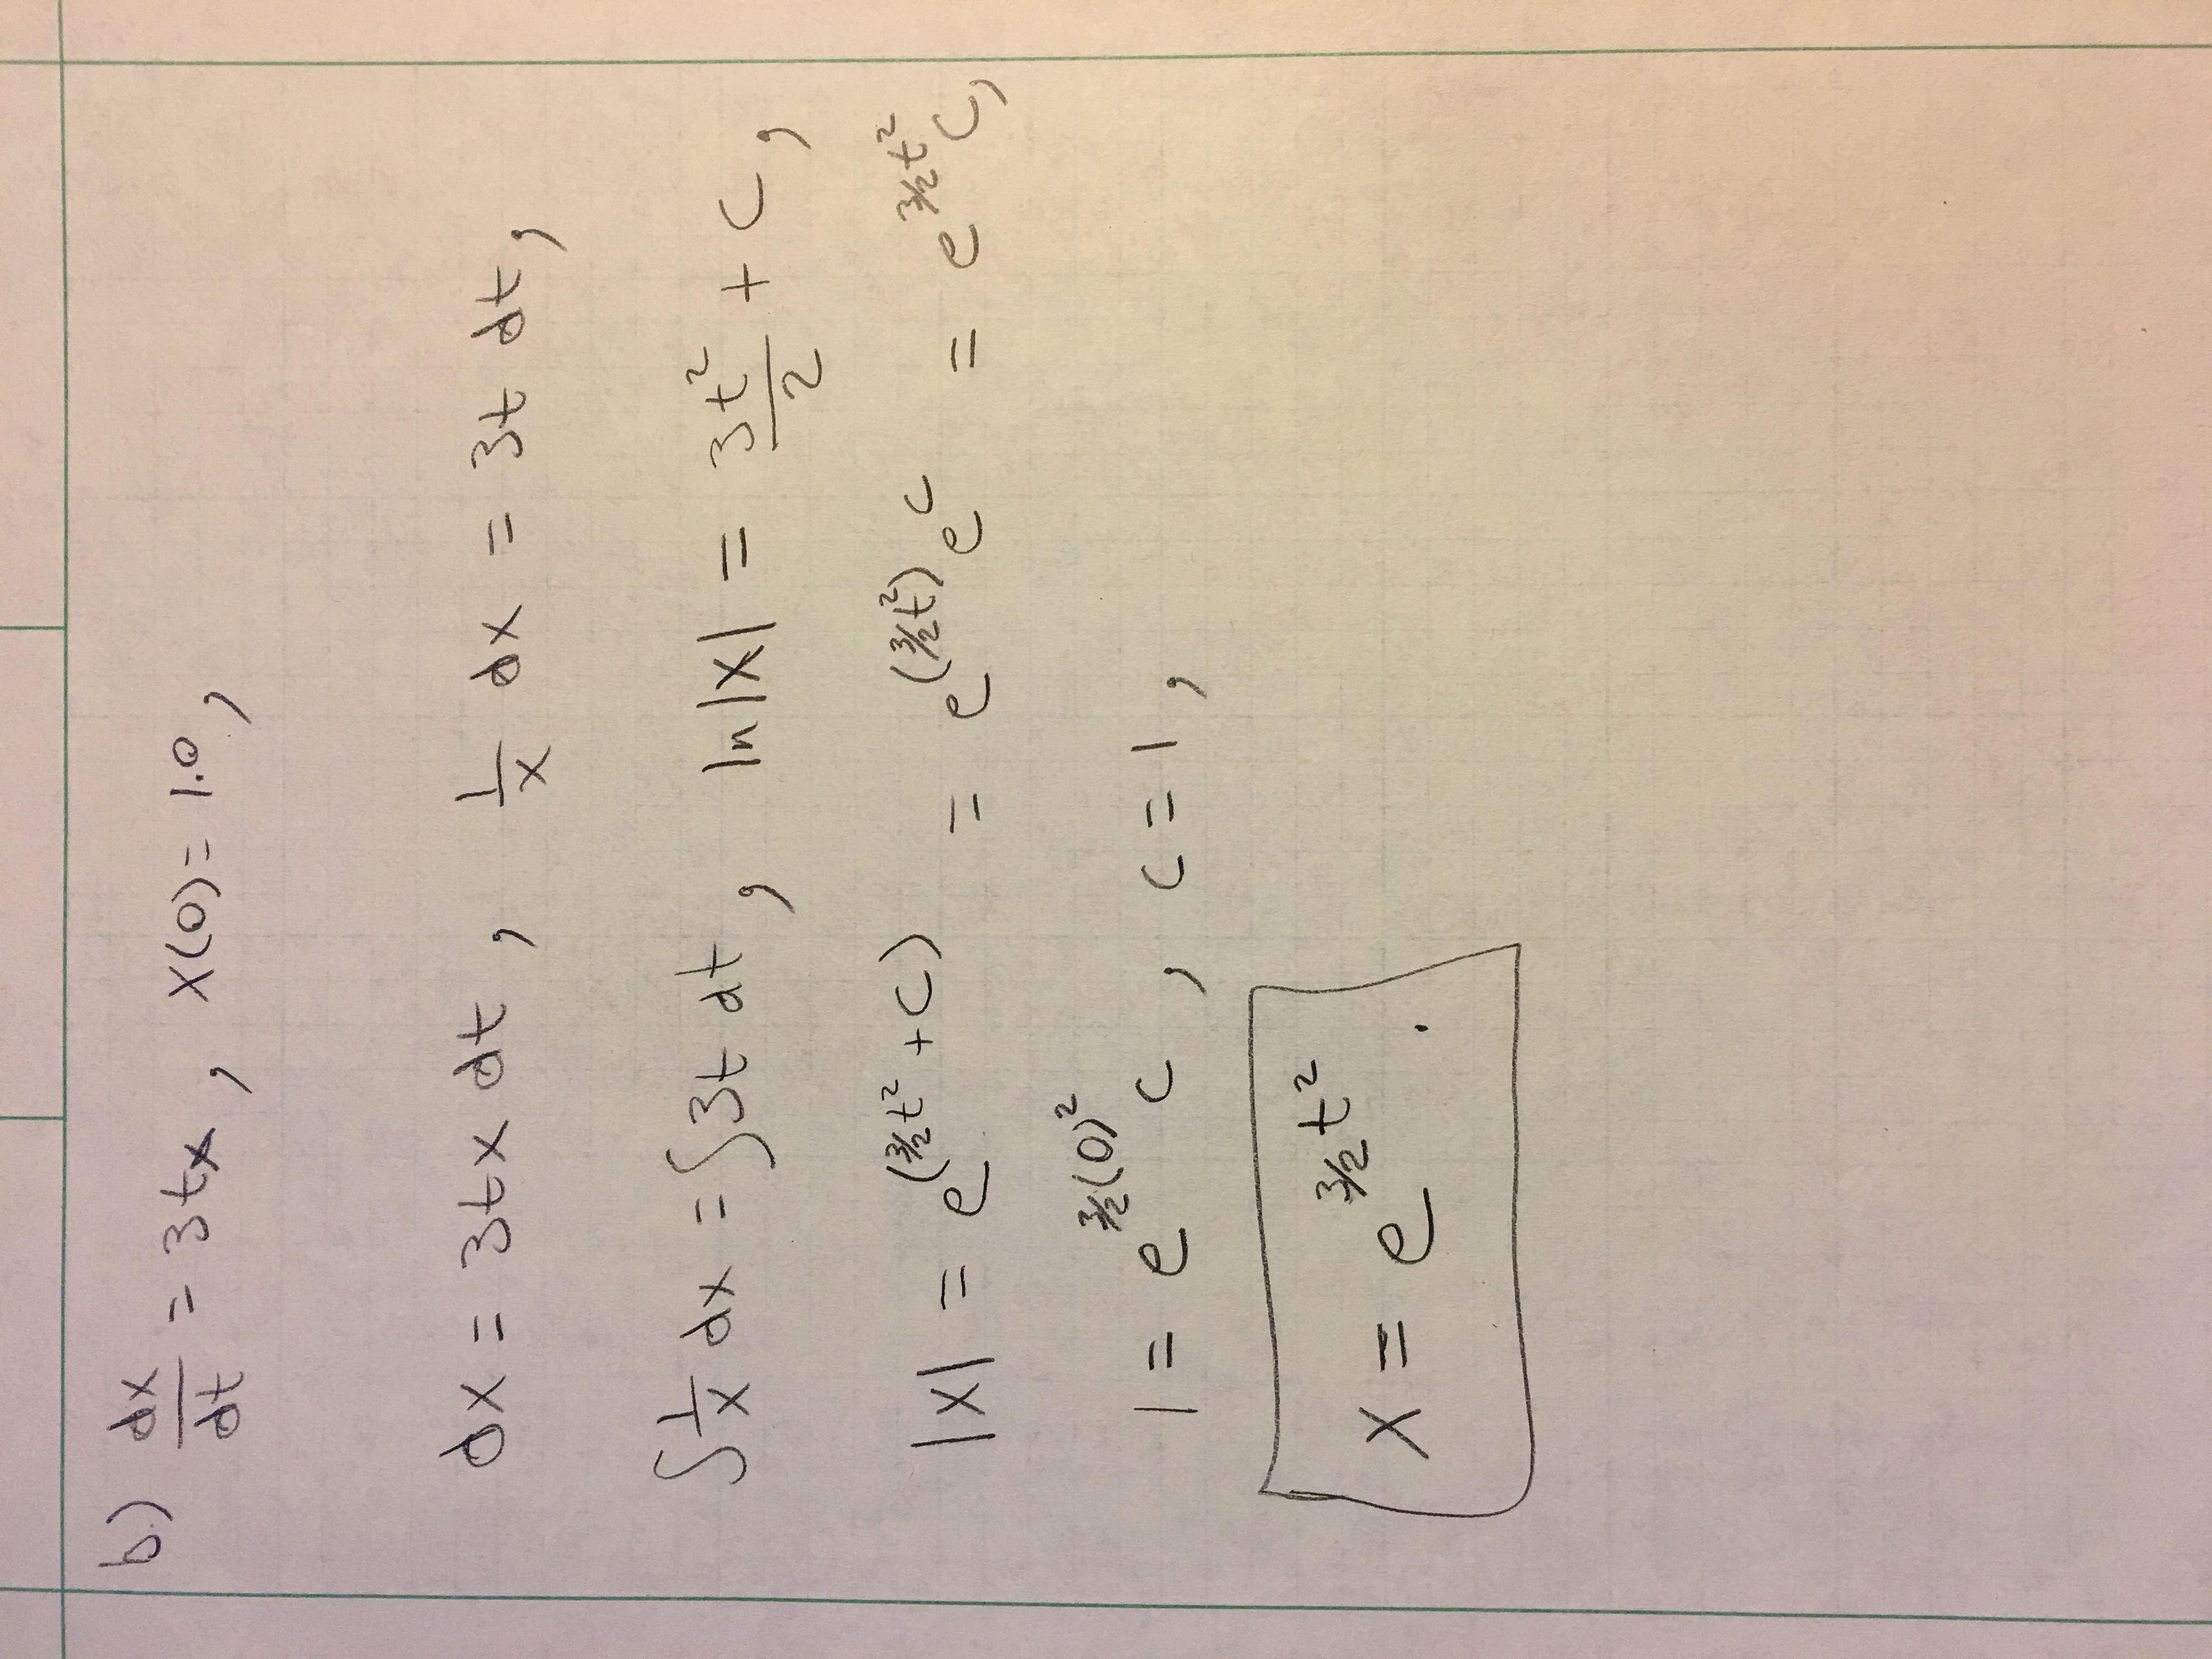 b.) dx/dt = 3tx , x(0) = 1.0 ,
dx = 3tx dt , 1/x dx = 3t dt,
∫ 1/x dx = ∫ 3t dt , ln|x| = 3t²/2 + c ,
|x| = e^(3/2 t² + c) = e^(3/2 t²) e^c = e^3/2 t² c,
1 = e^3/2(0)² c , c = 1 ,
x = e^3/2 t² .